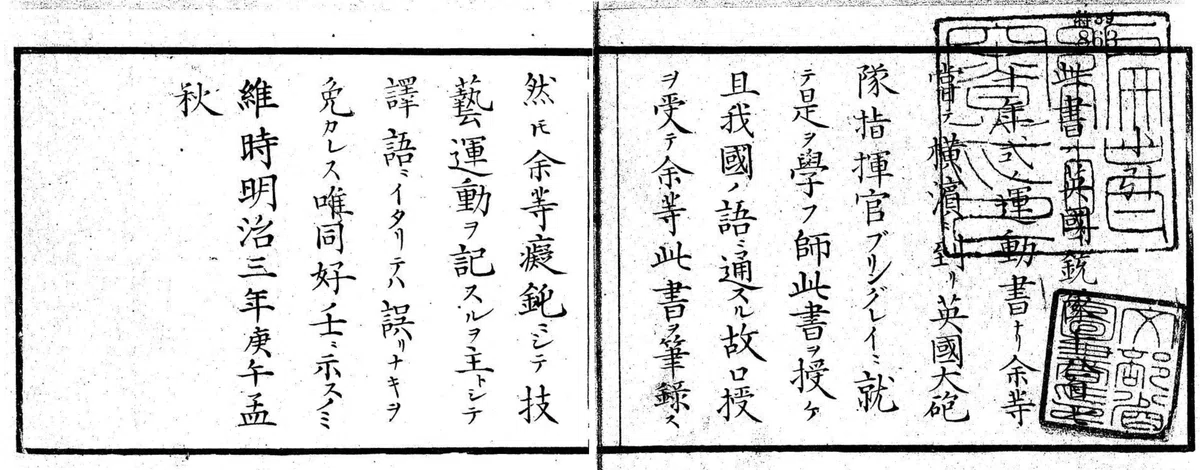 特39
863
小引
此書ハ英國銃隊
十年式ノ運動書ナリ余等
嘗テ横濱ニ到リ英國大砲
隊指揮官ブリングレイニ就
テ是ヲ學フ師此書ヲ授ケ
且我國ノ語ニ通スル故口授
ヲ受テ余等此書ヲ筆録ス
然𪜈余等癡鈍ニシテ技
藝運動ヲ記スルヲ主トシテ
譯語ニイタリテハ誤リナキヲ
免カレス唯同好ノ士ニ示スノミ
維時明治三年庚午孟
秋